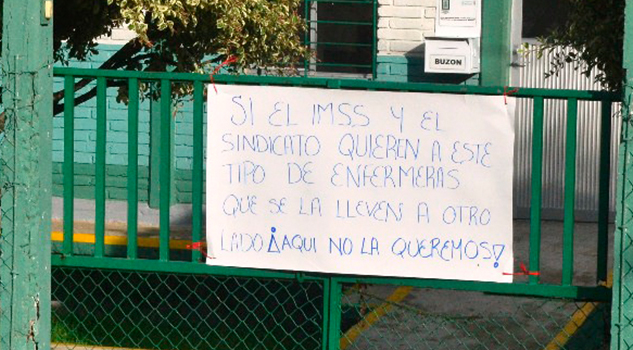 BUZON
SI EL IMSS Y EL
SINDICATO QUIEREN A ESTE
TIPO DE ENFERMERAS
QUE SE LA LLEVEN A OTRO
LADO ¡AQUI NO LA QUEREMOS!